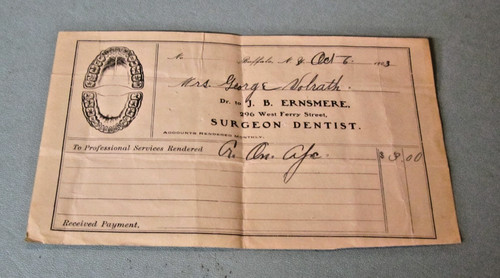 No. Buffalo, N. Y. Oct 6 1903
Mrs. George Volrath
Dr. to J. B. ERNSMERE,
296 West Ferry Street,
SURGEON DENTIST.
ACCOUNTS RENDERED MONTHLY.
To Professional Services Rendered Cr. On. a/c $ 3.00
Received Payment.